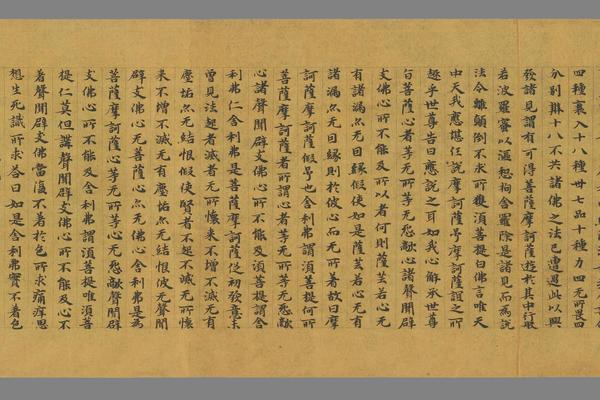 四種裏入十八種卅七品十種力四无所畏四
分別辯十八不共諸佛之法已遭遇此以興
發諸見謂有可得菩薩摩訶薩遊於其中行般
若波羅蜜以漚惒拘舍羅除是諸見而為說
法令離顛倒不求所獲須菩提白佛言唯天
中天我應堪任說摩訶薩号摩訶薩誼之所
趣乎世尊告曰應說之耳如我心解承世尊
旨菩薩心者等无所等无㤪敵心諸聲聞辟
支佛心所不能及所以者何則薩芸若心无
有諸漏亦无因緣假使如是薩芸若心无有
諸漏亦无因緣則於彼心而无所著故曰摩
訶薩摩訶薩假号也舍利弗謂須菩提何所
菩薩摩訶薩者所謂心者等无所等无㤪敵
心諸聲聞辟支佛心所不能及須菩提謂舍
利弗仁舍利弗是菩薩摩訶薩從初發意未
曾見法起者滅者无所懷来不增不減无有
塵垢亦无結恨假使賢者不起不滅无所懷
来不增不減无有塵垢亦无結恨彼无聲聞
辟支佛心无菩薩心亦无佛心舍利弗是為
菩薩摩訶薩心等无所等心无㤪敵聲聞辟
支佛心所不能及舍利弗謂須菩提唯須菩
提仁莫但講聲聞辟支佛心所不能及心不
著聲聞辟支佛當復不著於色所求痛痒思
想生死識所求答曰如是舍利弗實不著色